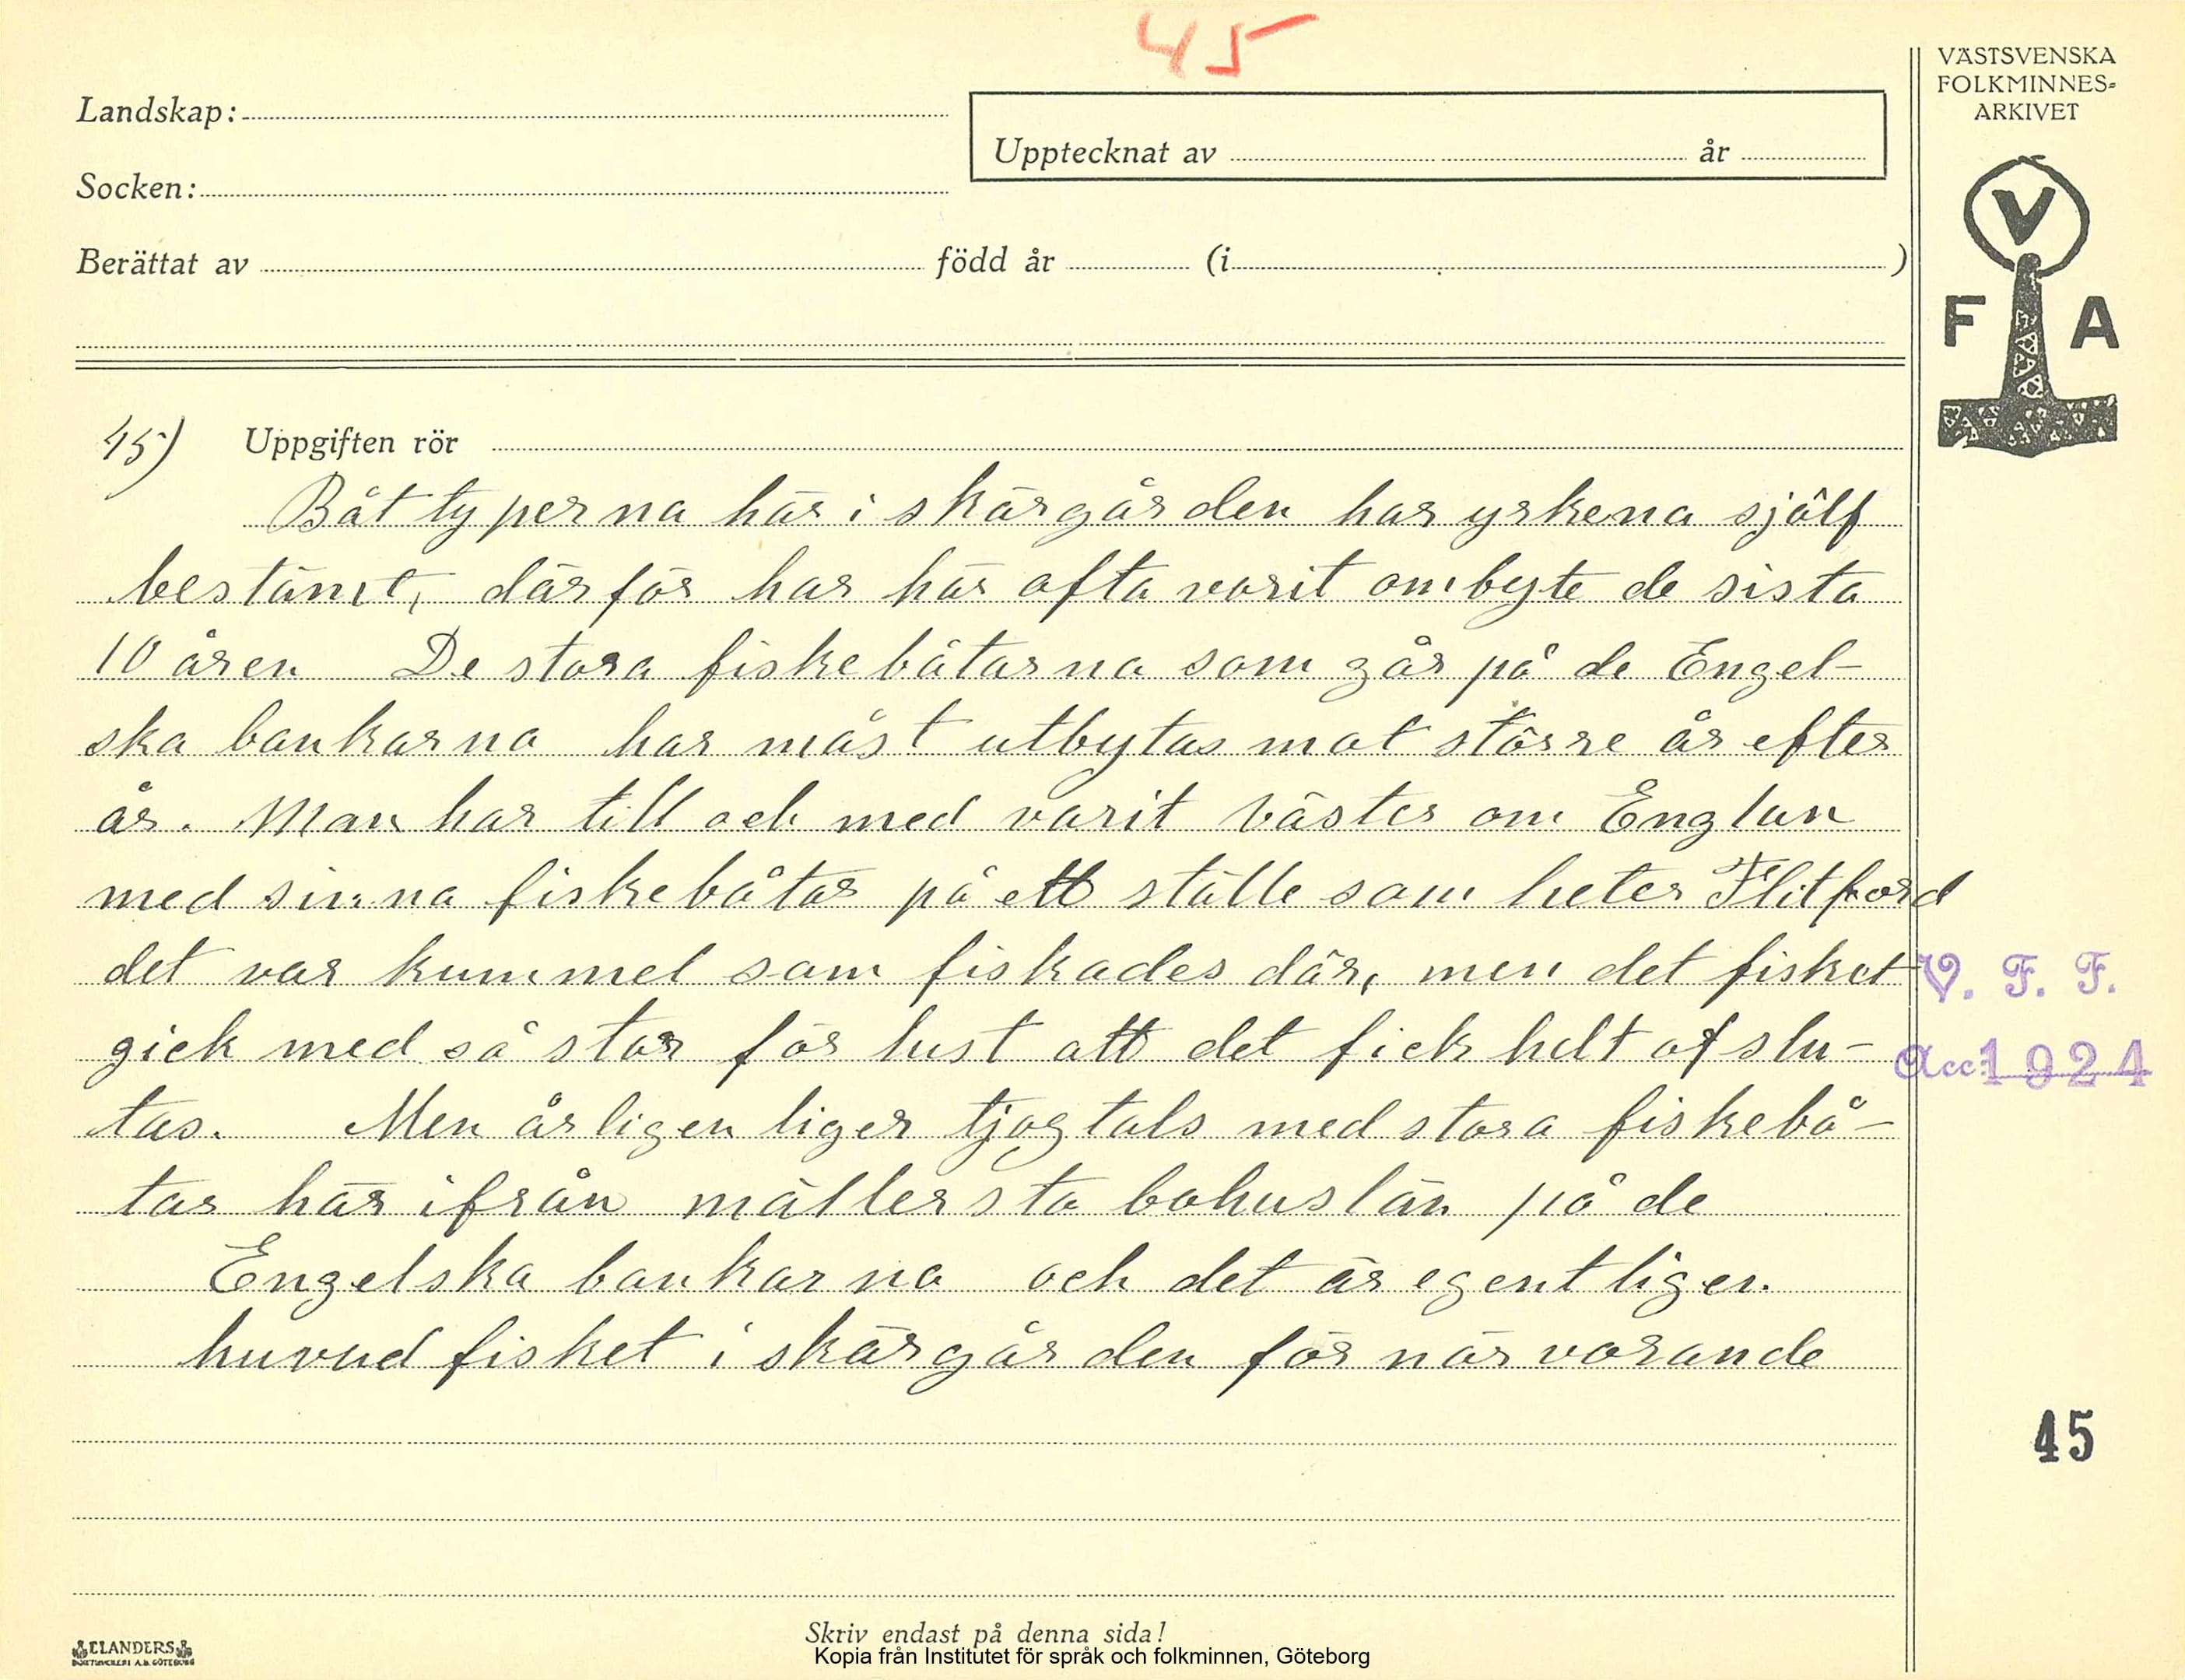 45
VÄSTSVENSKA
FOLKMINNES-
ARKIVET
Landskap:
Upptecknat av år
Socken:
Berättat av född år (i )
V
F A
45) Uppgiften rör
Båttyperna här i skärgården har yrkena sjâlf
bestämt, därför har här ofta varit ombyte de sista
10 åren De stora fiskebåtarna som går på de Engel-
ska bankarna har måst utbytas mot större år efter
år. Man har till och med varit väster om Englan
med sinna fiskebåtar på ett ställe som heter Flitford
det var kummel som fiskades där, men det fisket
gick med så stor för lust att det fick helt af slu-
tas. Men årligen liger tjogtals med stora fiskebå-
tar här ifrån mällersta bohuslän på de
Engelska bankarna och det är egentligen
huvud fisket i skärgården för närvarande
V. F. F.
Acc: 1924
45
Skriv endast på denna sida!
ELANDERS
BOKTRYCKERI A.B. GÖTEBORG
Kopia från Institutet för språk och folkminnen, Göteborg